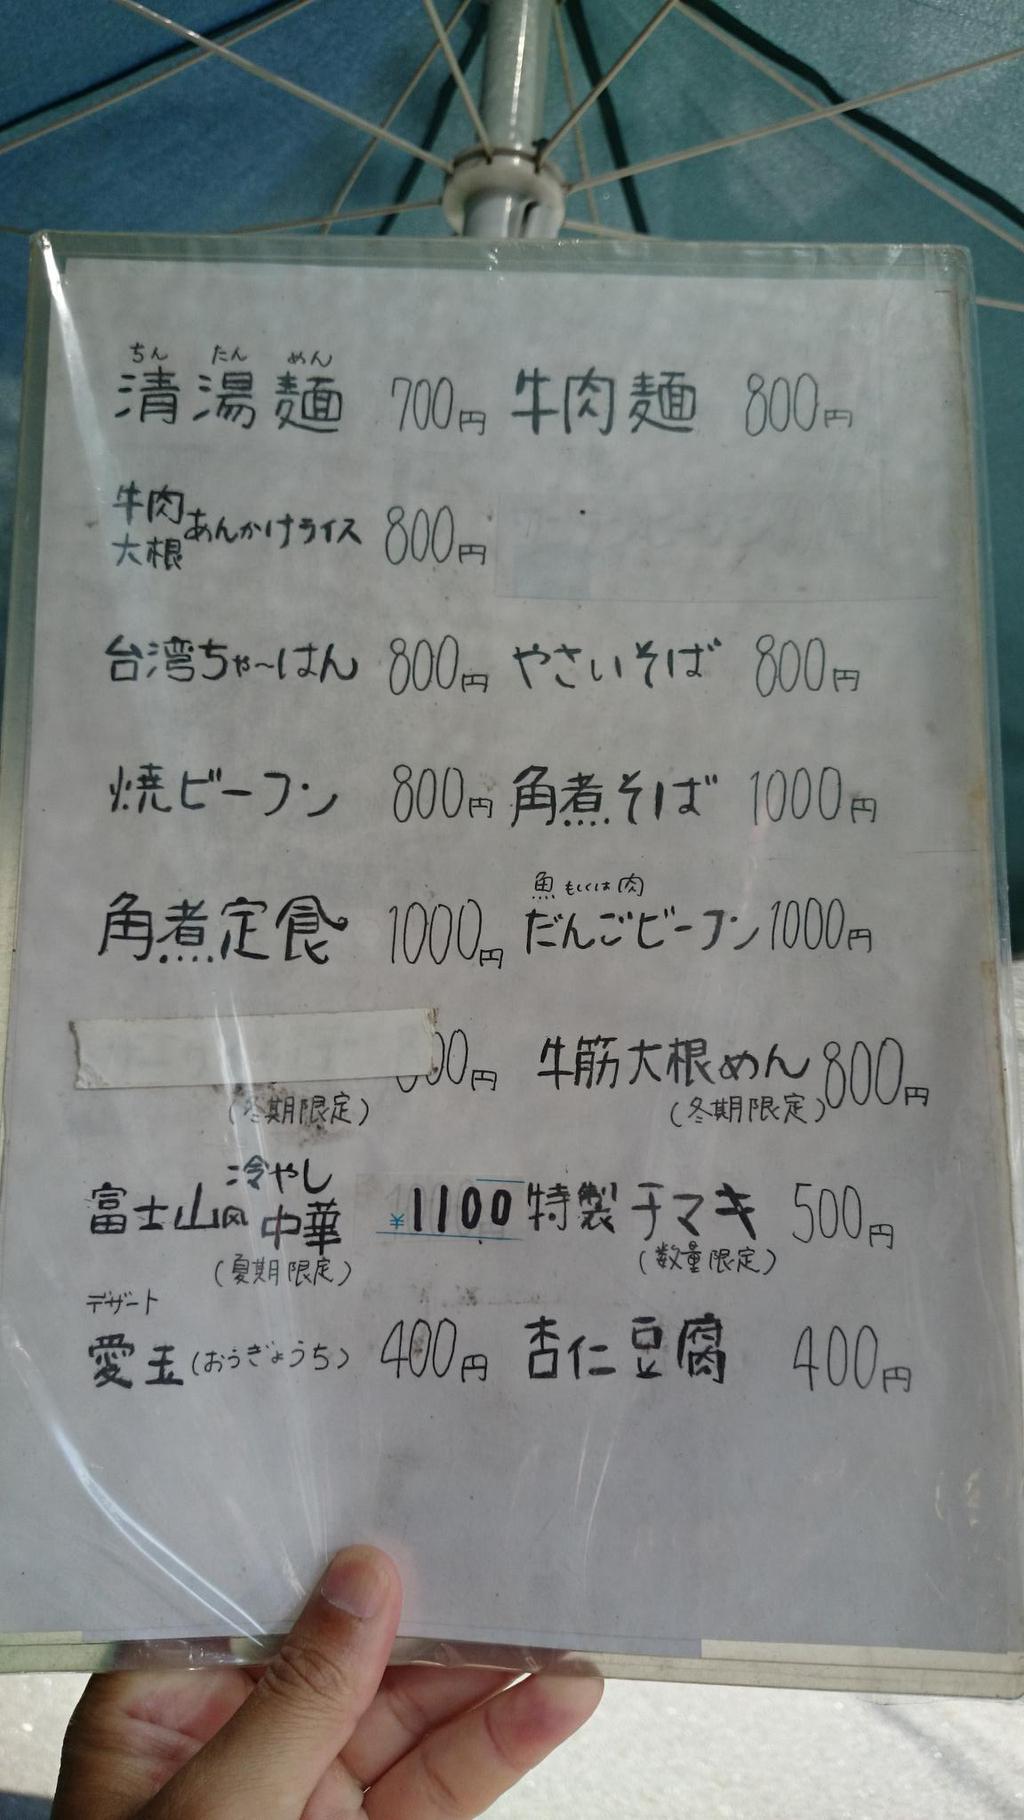 ちん たん めん
清湯麺 700円 牛肉麺 800円
牛肉大根あんかけライス 800円
台湾ちゃ〜はん 800円 やさいそば 800円
焼ビーフン 800円 角煮そば 1000円
魚もしくは肉
角煮定食 1000円 だんごビーフン 1000円
00円 牛筋大根めん 800円
(冬期限定) (冬期限定)
富士山風冷やし中華 ¥1100 特製チマキ 500円
(夏期限定) (数量限定)
デザート
愛玉(おうぎょうち) 400円 杏仁豆腐 400円